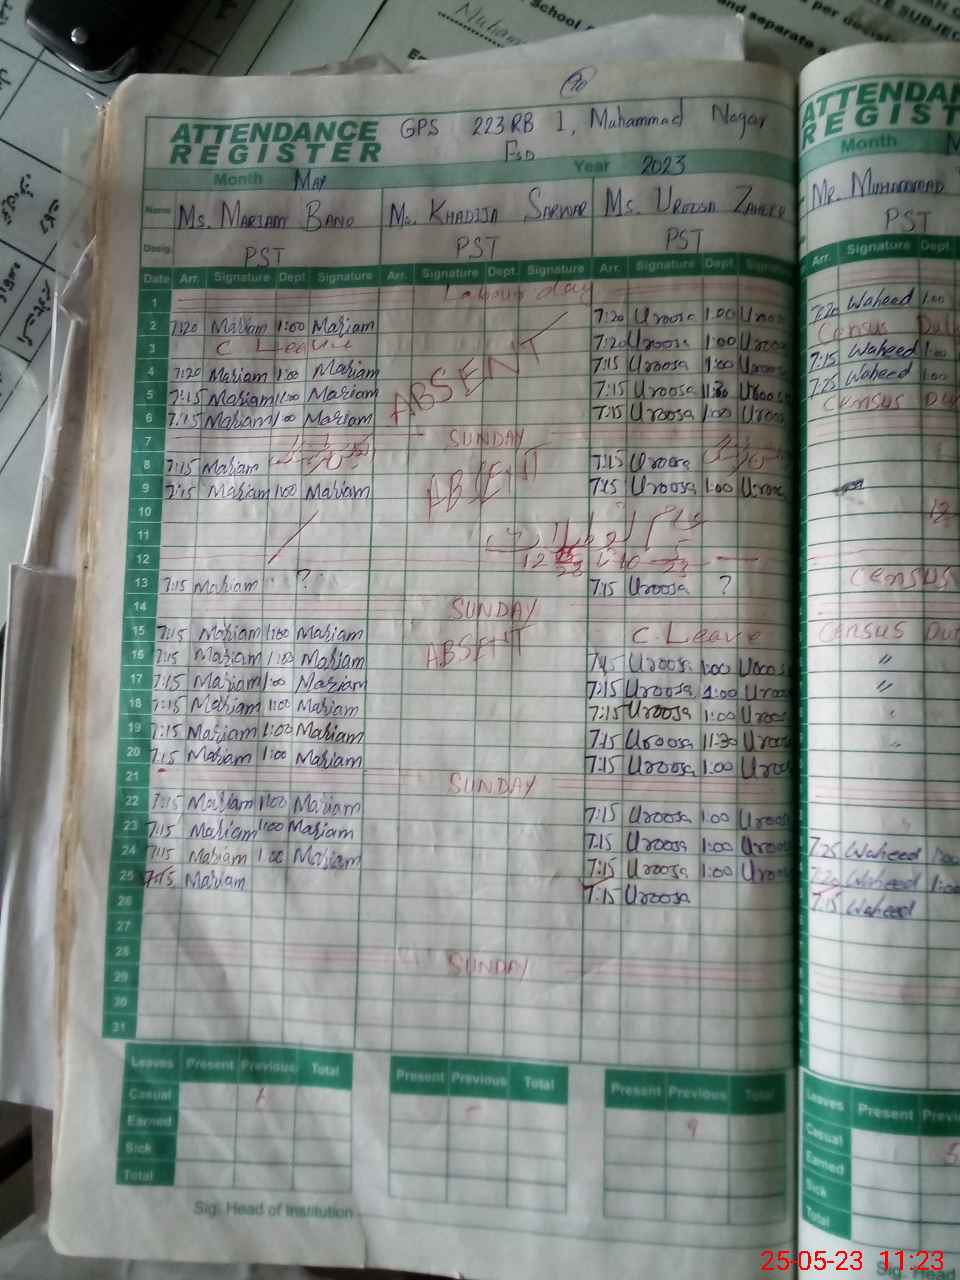 ATTENDANCE REGISTER GPS 223 RB I, Muhammad Nagar
FSD
Month May Year 2023
Name Ms. Mariam Bano Ms. Khadija Sarwar Ms. Uroosa Zaheer
Desig. PST PST PST
Date Arr. Signature Dept Signature Arr. Signature Dept. Signature Arr. Signature Dept Signature
1 Labour day
2 7:20 Mariam 1:00 Mariam 7:20 Uroosa 1:00 Uroosa
3 C. Leave 7:20 Uroosa 1:00 Uroosa
4 7:20 Mariam 1:00 Mariam ABSENT 7:15 Uroosa 1:00 Uroosa
5 7:15 Mariam 11:00 Mariam 7:15 Uroosa 11:30 Uroosa
6 7:15 Mariam 1:00 Mariam 7:15 Uroosa 1:00 Uroosa
7 SUNDAY
8 7:15 Mariam 7:15 Uroosa
9 7:15 Mariam 1:00 Mariam ABSENT 7:15 Uroosa 1:00 Uroosa
10
11
12
13 7:15 Mariam ? 7:15 Uroosa ?
14 SUNDAY
15 7:15 Mariam 1:00 Mariam ABSENT C. Leave
16 7:15 Mariam 1:00 Mariam 7:15 Uroosa 1:00 Uroosa
17 7:15 Mariam 1:00 Mariam 7:15 Uroosa 1:00 Uroosa
18 7:15 Mariam 1:00 Mariam 7:15 Uroosa 1:00 Uroosa
19 7:15 Mariam 1:00 Mariam 7:15 Uroosa 11:30 Uroosa
20 7:15 Mariam 1:00 Mariam 7:15 Uroosa 1:00 Uroosa
21 SUNDAY
22 7:15 Mariam 1:00 Mariam 7:15 Uroosa 1:00 Uroosa
23 7:15 Mariam 1:00 Mariam 7:15 Uroosa 1:00 Uroosa
24 7:15 Mariam 1:00 Mariam 7:15 Uroosa 1:00 Uroosa
25 7:15 Mariam 7:15 Uroosa
26
27
28 SUNDAY
29
30
31
Leaves Present Previous Total Present Previous Total Present Previous Total
Casual 1 -
Earned 9
Sick
Total
Sig. Head of Institution
ATTENDAN
REGIST
Month
Mr. Muhammad
PST
Arr. Signature Dept
7:20 Waheed 1:00
Census Du
7:15 Waheed 1:00
7:25 Waheed 1:00
Census Du
Census
Census Dut
"
"
7:25 Waheed 1:00
7:20 Waheed 1:00
7:15 Waheed
Leaves Present Previ
Casual
Earned 5
Sick
Total
Sig. Head
25-05-23 11:23